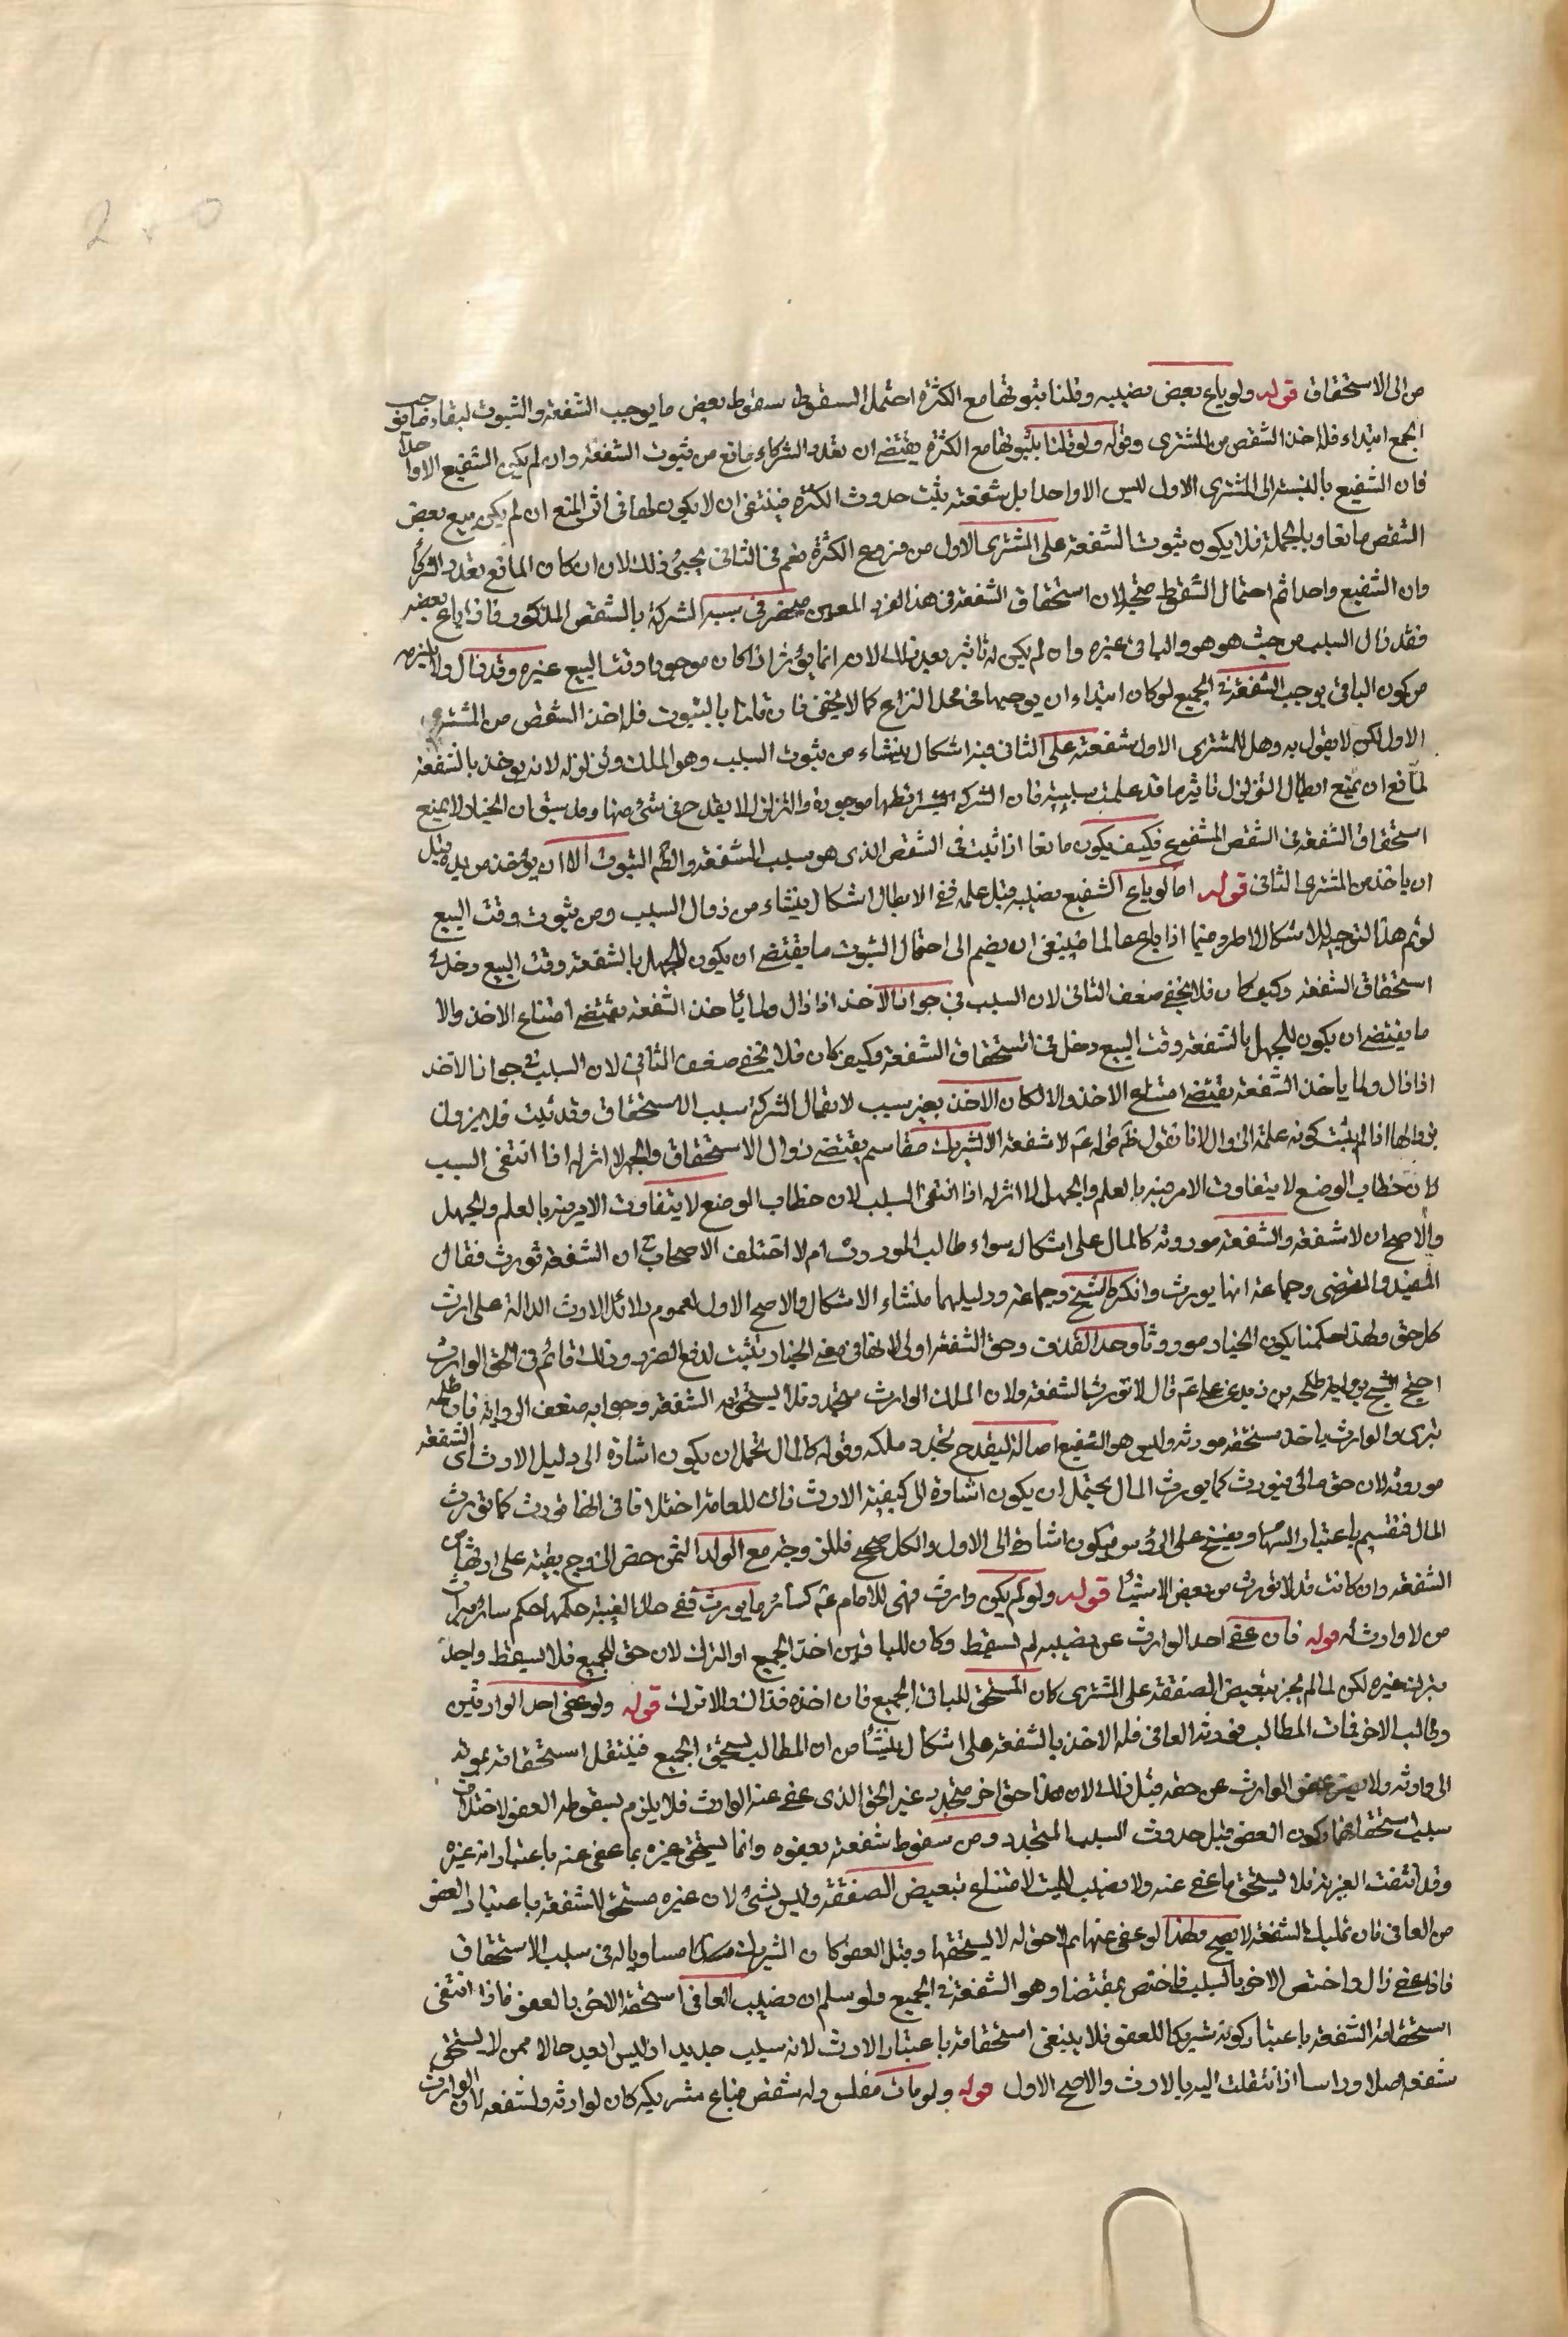 من الى الاستحقاق قوله ولو باع بعض نصيبه وقلنا بثبوتها مع الكثرة احتمل السقوط سقوط بعض ما يوجب الشفعة والثبوت لبقاء ما يوجب
الجمع ابتداء فله اخذ الشقص من المشترى وقوله ولو قلنا بثبوتها مع الكثرة يقتضى ان تعدد الشركاء مانع من ثبوت الشفعة وان لم يكن الشفيع الا واحدا
فان الشفيع بالنسبة الى المشترى الاول ليس الا واحدا بل شفعته يثبت حدوث الكثرة فينتفى ان لا يكون لها فى اثر المنع ان لم يكن بيع بعض
الشقص مانعا وبالجملة فلا يكون ثبوت الشفعة على المشترى الاول من فروع الكثرة نعم فى الثانى يجيئ ذلك لان ان كان المانع تعدد الشركاء
وان الشفيع واحدا ثم احتمال السقوط متجه لان استحقاق الشفعة فى هذا الفرد المعين منحصر فى سببية الشركة بالشقص المذكور فاذا باع بعضه
فقد زال السبب من حيث هو هو والباقى غيره وان لم يكن له تاثير بعد ذلك لانه انما يؤثر اذا كان موجودا وقت البيع غيره وقد زال ولا يلزم
من كون الباقى يوجب الشفعة فى الجميع لو كان ابتداء ان يوجبها فى محل النزاع كما لا يخفى فان قلنا بالثبوت فله اخذ الشقص من المشترى
الاول لكن لا يقول به وهل للمشترى الاول شفعة على الثانى فيه اشكال ينشاء من ثبوت السبب وهو الملك وتزلزله لانه يوخذ بالشفعة
لمانع ان يمنع ابطال التزلزل تاثير ما قد علمت سببيته فان الشركة بشرائطها موجودة والتزلزل لا يقدح فى شئ منها وقد سبق ان الخيار لا يمنع
استحقاق الشفعة فى الشقص المشفوع فكيف يكون مانعا اذا ثبت فى الشقص الذى هو سبب الشفعة والظم الثبوت الا ان يؤخذ من يده قبل
ان ياخذ من المشترى الثانى قوله اما لو باع الشفيع نصيبه قبل علمه ففى الابطال اشكال ينشاء من زوال السبب ومن ثبوت وقت البيع
لو تم هذا التوجيه للاشكال لاطرد فيما اذا باع عالما فينبغى ان يضم الى احتمال الثبوت ما يقتضى ان يكون للجهل بالشفعة وقت البيع دخل فى
استحقاق الشفعة وكيف كان فلا يخفى ضعف الثانى لان السبب فى جواز الاخذ اذا زال ولما ياخذ الشفعة يقتضى امتناع الاخذ والا
ما يقتضى ان يكون للجهل بالشفعة وقت البيع دخل فى استحقاق الشفعة وكيف كان فلا يخفى ضعف الثانى لان السبب فى جواز الاخذ
اذا زال ولما ياخذ الشفعة يقتضى امتناع الاخذ والا لكان الاخذ بغير سبب لا يقال الشركة سبب الاستحقاق وقد ثبت فلا يزول
بزوالها اذا لم يثبت كونه علة الزوال لانا نقول ظم قوله عم لا شفعة الا لشريك مقاسم يقتضى زوال الاستحقاق والجهل لا اثر له اذا انتفى السبب
لان خطاب الوضع لا يتفاوت الامر فيه بالعلم والجهل لا اثر له اذا انتفى السبب لان خطاب الوضع لا يتفاوت الامر فيه بالعلم والجهل
والاصح ان لا شفعة والشفعة موروثة كالمال على اشكال سواء طالب المورث ام لا اختلف الاصحاب فى ان الشفعة تورث فقال
المفيد والمرتضى وجماعة انها يورث وانكره الشيخ وجماعة ودليلهما منشاء الاشكال والاصح الاول لعموم دلائل الارث الدالة على ارث
كل حق ولهذا حكمنا بكون الخيار موروثا وحد القذف وحق الشفعة اولى لانها فى معنى الخيار يثبت لدفع الضرر وذلك قائم فى الحق الوارث
احتج الشيخ برواية طلحة بن زيد عن على عم قال لا تورث الشفعة ولان الملك الوارث متجدد فلا يستحق به الشفعة وجوابه ضعف الرواية فان طلحة
بترى والوارث ياخذ ما يستحقه مورثه وليس هو الشفيع اصالة ليقدح تجدد ملكه وقوله كالمال يحتمل ان يكون اشارة الى دليل الارث اى الشفعة
موروثة لان حق مالى فيورث كما يورث المال يحتمل ان يكون اشارة الى كيفية الارث فان للعامة اختلافا فى انها تورث كما تورث
المال فتقسم باعتبار السهام على الرؤس فيكون اشارة الى الاول والكل صحيح فللزوجة مع الولد الثمن
الشفعة وان كانت قد لا تورث من بعض الاشياء قوله ولو لم يكن وارث فهى للامام عم كسائر ما يورث ففى حال الغيبة حكمها حكم سائر ميراث
من لا وارث له قوله فان عفى احد الوارث عن نصيبه لم تسقط وكان للباقين اخذ الجميع او الترك لان حق للجميع فلا يسقط واحد
بترك غيره لكن لما لم يجز تبعيض الصفقة على المشترى كان المستحق للباقى الجميع فان اخذه فذاك والا ترك قوله ولو عفى احد الوارثين
وطالب الاخر فمات المطالب فورثه العافى فله الاخذ بالشفعة على اشكال ينشأ من ان المطالب يستحق الجميع فينتقل استحقاقه بموته
الى وارثه ولا عفو الوارث عن حقه قبل ذلك لان هذا حق اخر متجدد غير الحق الذى عفى عنه الوارث فلا يلزم سقوطه العفو لاختلاف
سبب استحقاقهما وكون العفو قبل حدوث السبب المتجدد ومن سقوط شفعته بعفوه وانما يستحق غيره بما عفى عنه باعتبار انه غيره
وقد انتفت الغيرية فلا يستحق ما عفى عنه ولا نصيب الميت لامتناع تبعيض الصفقة وليس بشئ لان غيره مستحق للشفعة باعتبار العفو
من العافى فان تمليك الشفعة لا يصح ولهذا لو عفى عنها لم لا حق له لا يستحقها وقبل العفو كان الشريك مساويا له فى سبب الاستحقاق
فاذا عفى زال واختص الاخر بالسبب فاختص بمقتضاه وهو الشفعة فى الجميع ولو سلم ان نصيب العافى استحقه الاخر بالعفو فاذا انتفى
استحقاقه الشفعة باعتبار كونه شريكا للعفو فلا ينتفى استحقاقه باعتبار الارث لانه سبب جديد اذ ليس ابعد حالا ممن لا يستحق
شفعة اصلا وراسا اذا انتقلت اليه بالارث والاصح الاول قوله ولو مات مفلس وله شقص فباع شريكه كان لوارثه الشفعة لان الوارث